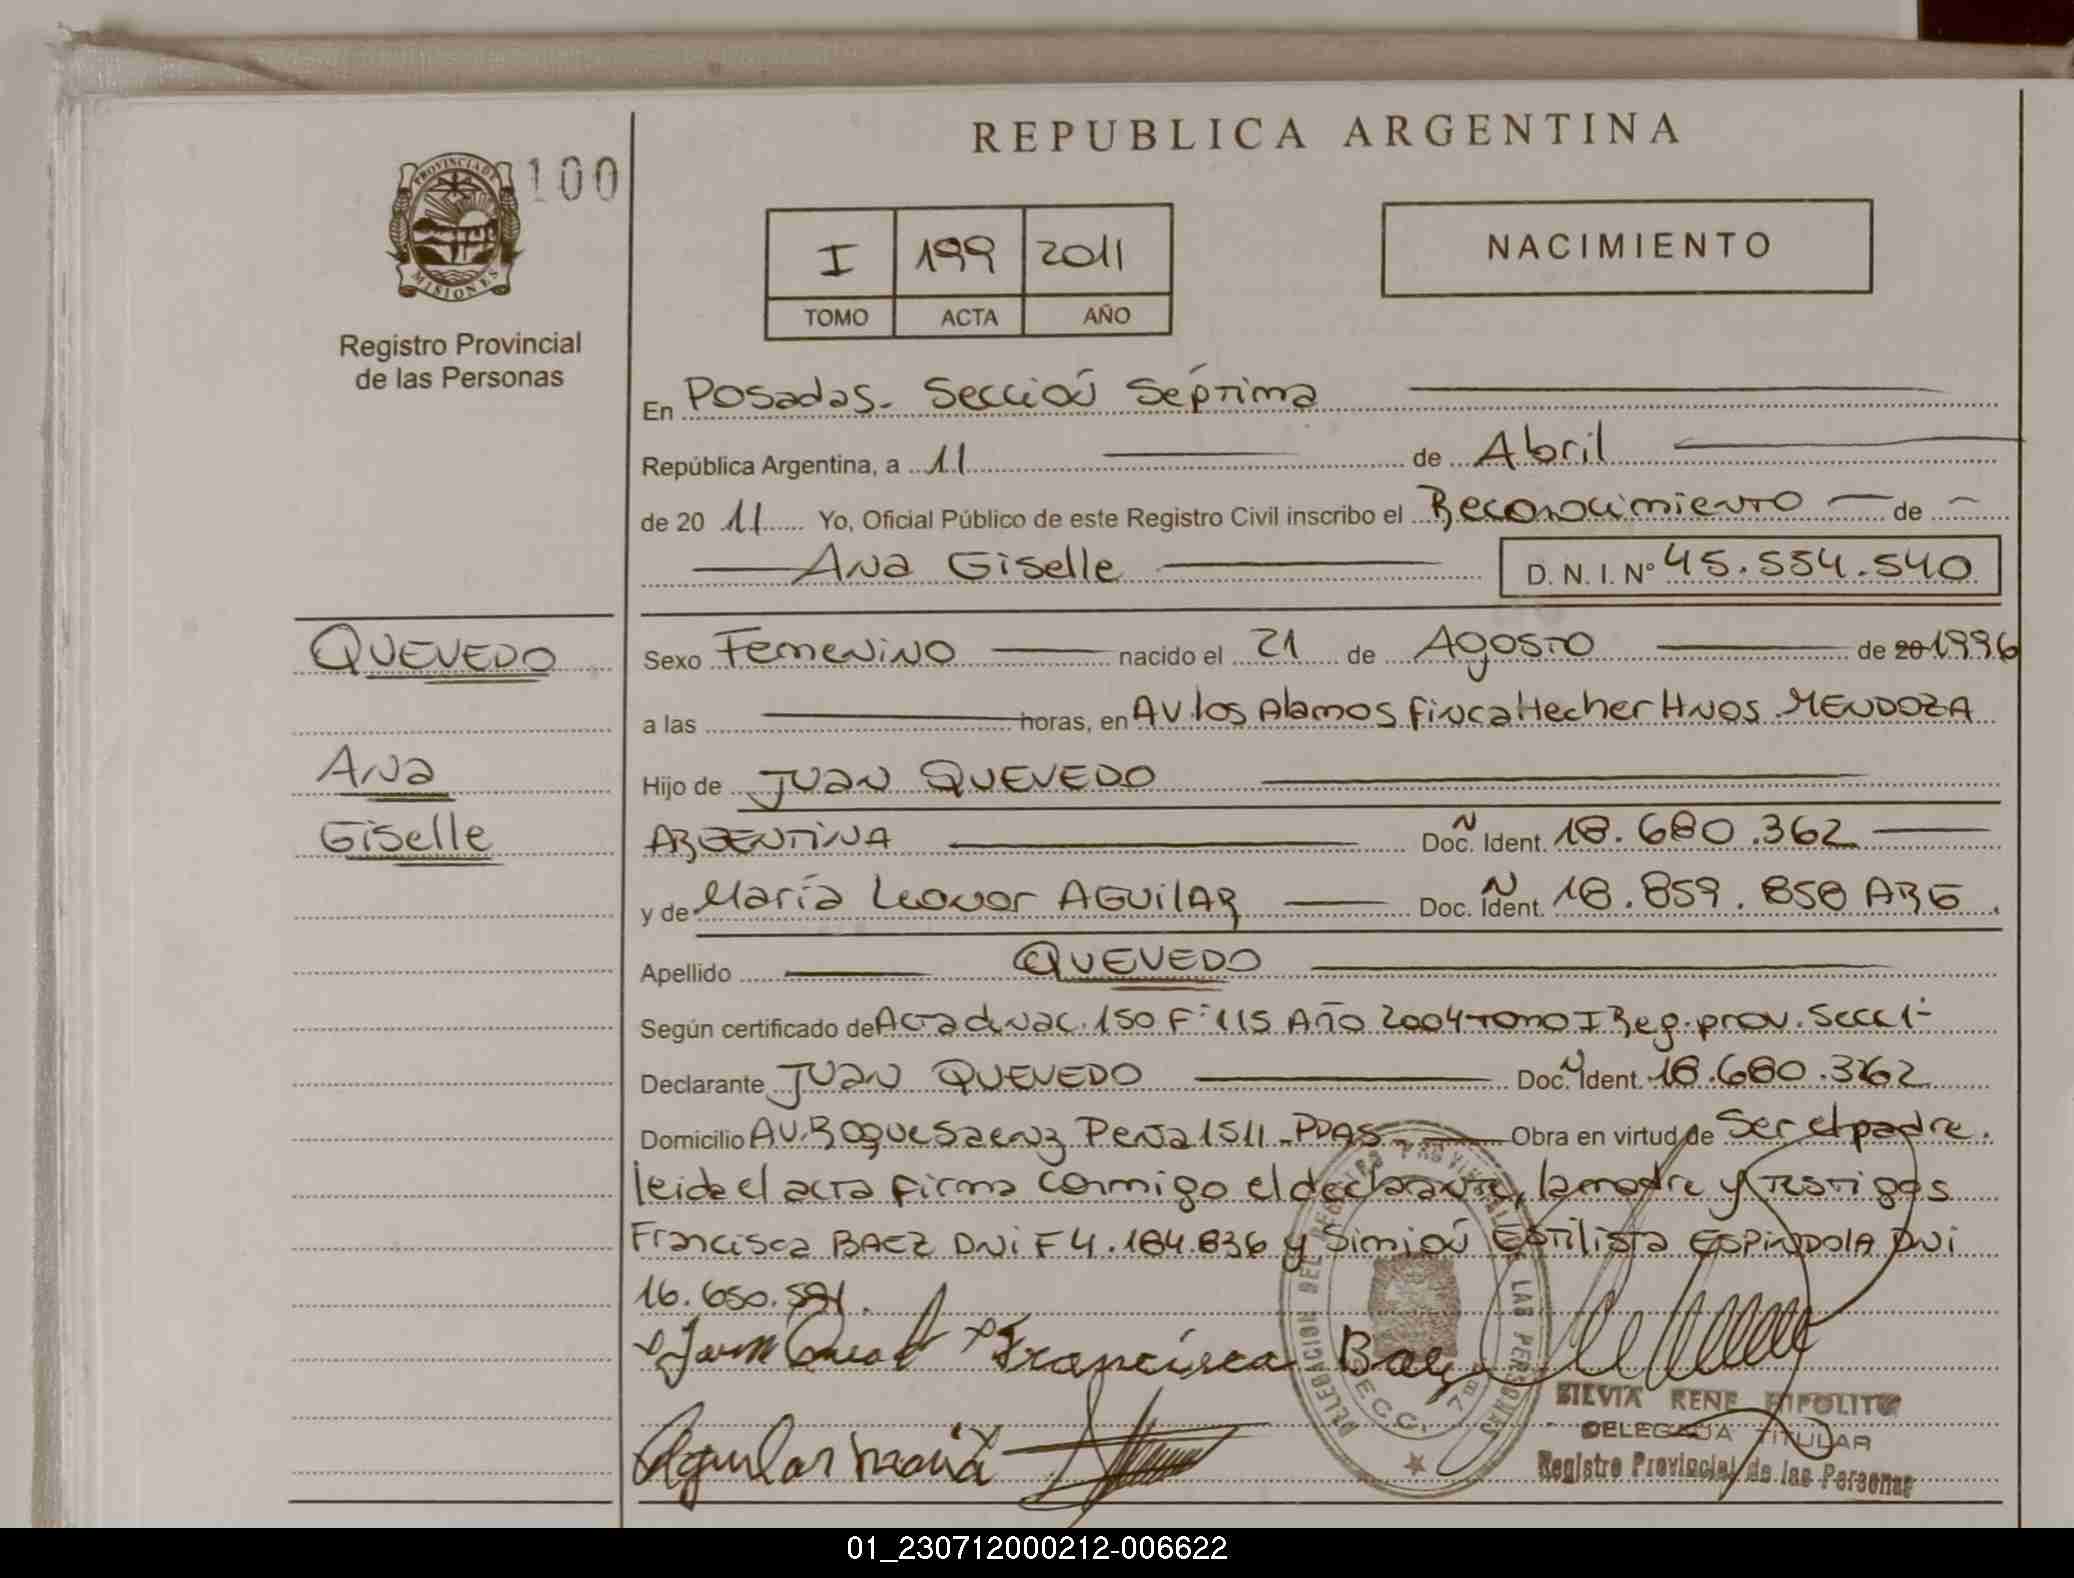 REPUBLICA ARGENTINA
PROVINCIA DE
MISIONES
100
Registro Provincial
de las Personas
I 199 2011
TOMO ACTA AÑO
NACIMIENTO
En Posadas - Sección Séptima
República Argentina, a 11 de Abril
de 20 11 Yo, Oficial Público de este Registro Civil inscribo el Reconocimiento de
Ana Giselle D. N. I. Nº 45.554.540
QUEVEDO
Ana
Giselle
Sexo Femenino nacido el 21 de Agosto de 20 1996
a las horas, en AV. los Alamos finca Hecher Hnos. MENDOZA
Hijo de JUAN QUEVEDO
ARGENTINA Doc. Ident. N 18.680.362
y de María Leonor AGUILAR Doc. Ident. N 18.859.858 ARG.
Apellido QUEVEDO
Según certificado de Acta de nac. 150 Fº 115 Año 2004 tomo I Reg. prov. Secc 1
Declarante JUAN QUEVEDO Doc. Ident. N 18.680.362
Domicilio AV. Roque Saenz Peña 1511 - Pdas - Obra en virtud de Ser el padre.
leida el acta firma conmigo el declarante, la madre y testigos
Francisca BAEZ DNI F 4.184.836 y Simión Estilista ESPINDOLA DNI
16.650.591.
Francisca Baez
Aguilar María
DELEGACION DEL REGISTRO PROVINCIAL DE LAS PERSONAS
SECC. 7ma
SILVIA RENE HIPOLITO
DELEGADA TITULAR
Registro Provincial de las Personas
01_230712000212-006622